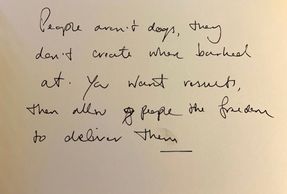 People aren't dogs, they
don't create when barked
at. You want results,
then allow people the freedom
to deliver them